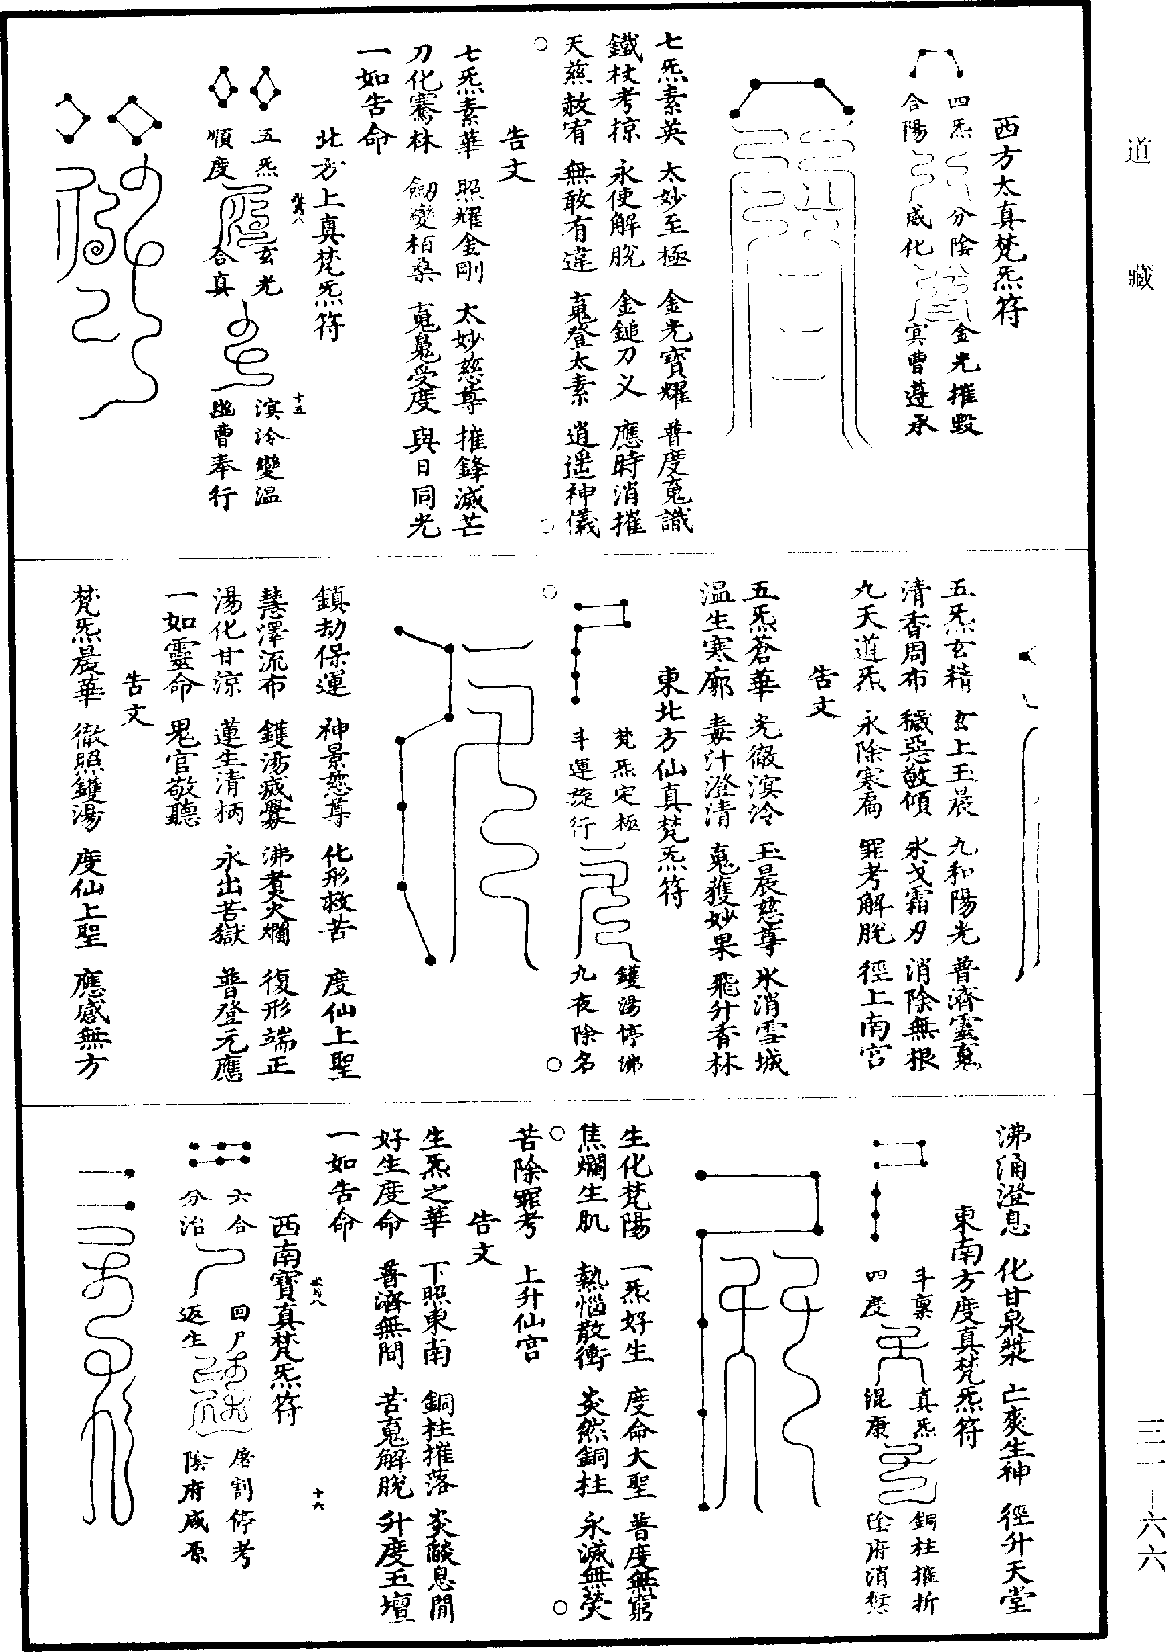 道藏
三一-六六
西方太真梵炁符
四炁 分陰 金光摧毀
合陽 咸化 冥曹遵承
七炁素英 太妙至極 金光寶耀 普度䰟識
鐵杖考掠 永使解脫 金鎚刀义 應時消摧
天慈赦宥 無敢有違 䰟登太素 逍遥神儀
告文
七炁素華 照耀金剛 太妙慈尊 摧鋒滅芒
刀化騫林 劒變栢桑 䰟䰟受度 與日同光
一如告命
北方上真梵炁符
五炁 玄光 溟泠變温
順度 合真 幽曹奉行
十五
五炁玄精 玄上玉晨 九和陽光 普濟靈䰟
清香周布 穢惡敢傾 氷戈霜刃 消除無根
九天道炁 永除寒扃 罪考解脫 徑上南宫
告文
五炁蒼華 光徹溟泠 玉晨慈尊 氷消雪城
温生寒廓 毒汁澄清 䰟獲妙果 飛升香林
東北方仙真梵炁符
梵炁定極 鑊湯停沸
斗運旋行 九夜除名
鎮劫保運 神景慈尊 化形救苦 度仙上聖
慧澤流布 鑊湯威爨 沸煑火爛 復形端正
湯化甘凉 蓮生清柄 永出苦獄 普登元應
一如靈命 鬼官敬聽
告文
梵炁晨華 徹照鑊湯 度仙上聖 應感無方
沸涌澄息 化甘泉漿 亡爽生神 徑升天堂
東南方度真梵炁符
斗稟 真炁 銅柱摧折
四度 混康 陰府消愆
生化梵陽 一炁好生 度命大聖 普度無窮
焦爛生肌 熱惱散衝 炎然銅柱 永滅無熒
苦除罪考 上升仙宫
告文
生炁之華 下照東南 銅柱摧落 炎酸息閒
好生度命 普濟無間 苦䰟解脫 升度玉壇
一如告命
十六
西南寶真梵炁符
六合 回尸 屠割停考
分治 返生 陰府咸原